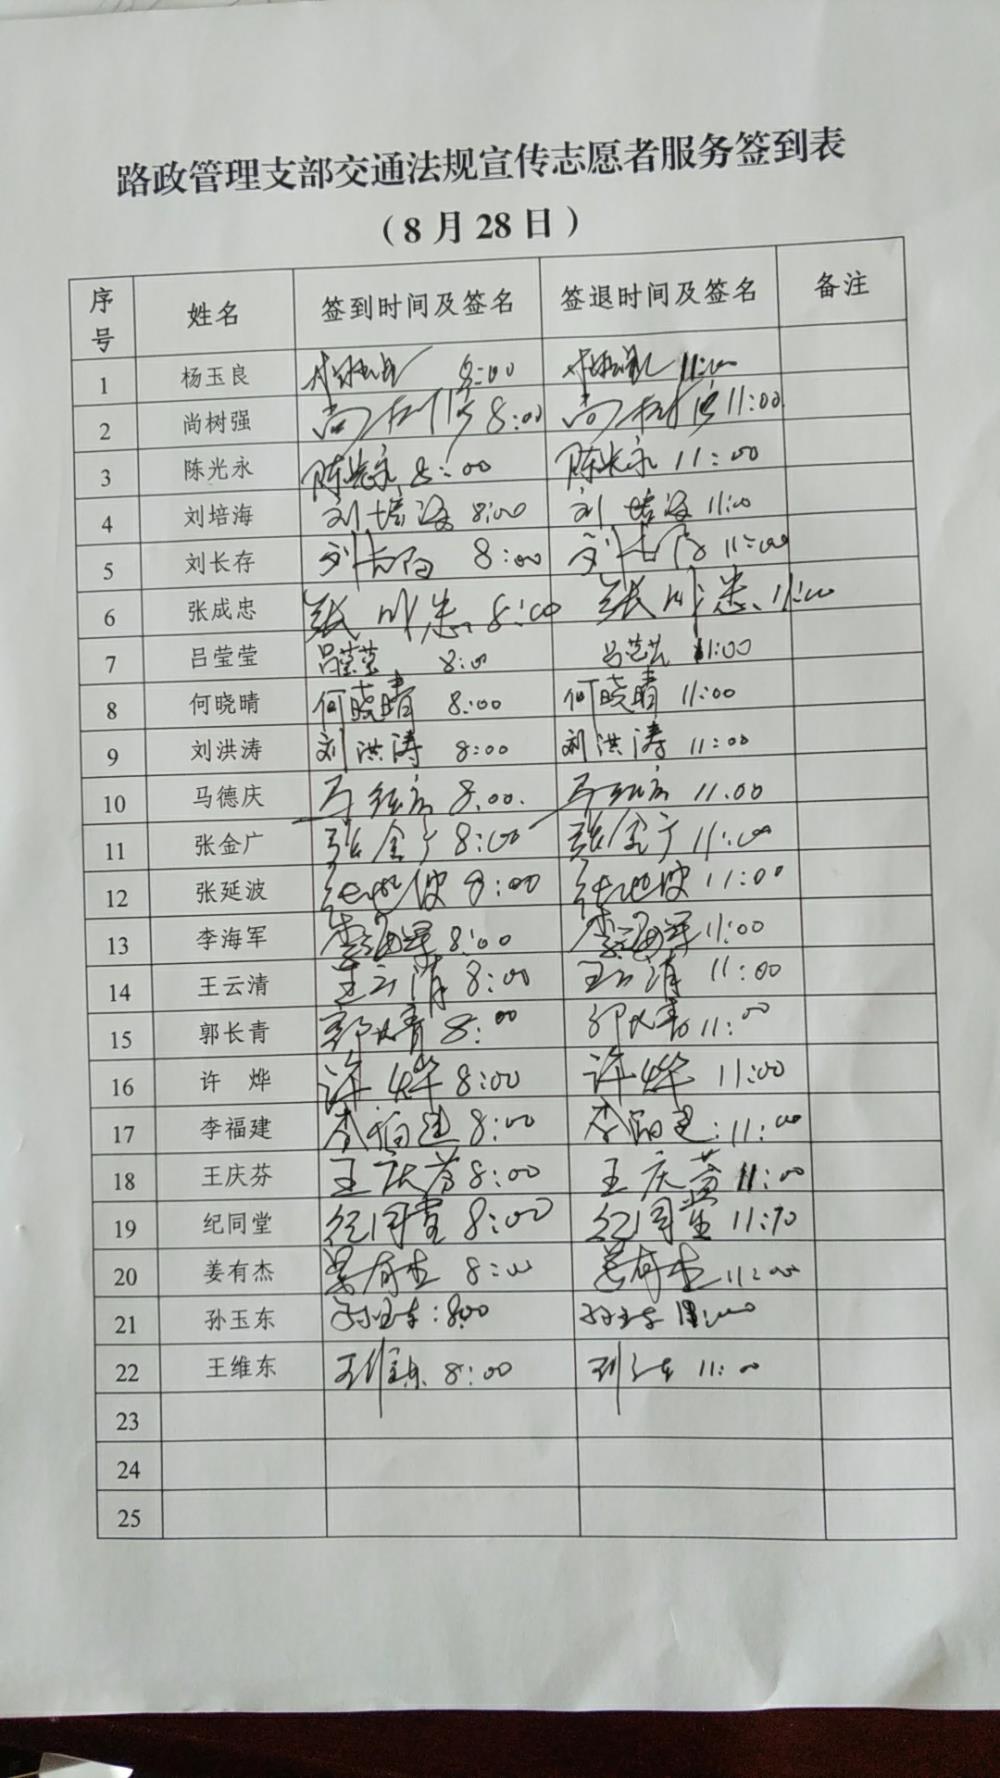 路政管理支部交通法规宣传志愿者服务签到表
（8月28日）
序号 姓名 签到时间及签名 签退时间及签名 备注
1 杨玉良 8:00 11:00
2 尚树强 尚树强 8:00 尚树强 11:00
3 陈光永 陈光永 8:00 陈光永 11:00
4 刘培海 刘培海 8:00 刘培海 11:00
5 刘长存 刘长存 8:00 刘长存 11:00
6 张成忠 张成忠 8:00 张成忠 11:00
7 吕莹莹 吕莹莹 8:00 吕莹莹 11:00
8 何晓晴 何晓晴 8:00 何晓晴 11:00
9 刘洪涛 刘洪涛 8:00 刘洪涛 11:00
10 马德庆 马德庆 8.00. 马德庆 11.00
11 张金广 张金广 8:00 张金广 11:00
12 张延波 张延波 8:00 张延波 11:00
13 李海军 李海军 8:00 李海军 11:00
14 王云清 王云清 8:00 王云清 11:00
15 郭长青 郭长青 8:00 郭长青 11:00
16 许 烨 许烨 8:00 许烨 11:00
17 李福建 李福建 8:00 李福建 11:00
18 王庆芬 王庆芬 8:00 王庆芬 11:00
19 纪同堂 纪同堂 8:00 纪同堂 11:10
20 姜有杰 姜有杰 8:00 姜有杰 11:00
21 孙玉东 孙玉东 8:00 孙玉东 11:00
22 王维东 王维东 8:00 11:00
23
24
25